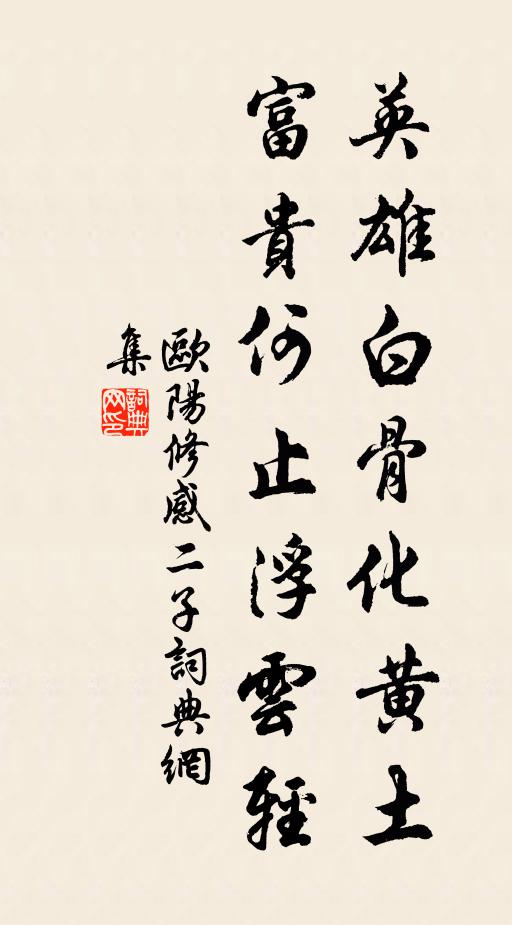 英雄白骨化黄土
富貴何止浮雲輕
歐陽修感二子詞典網
集
詞典
网印